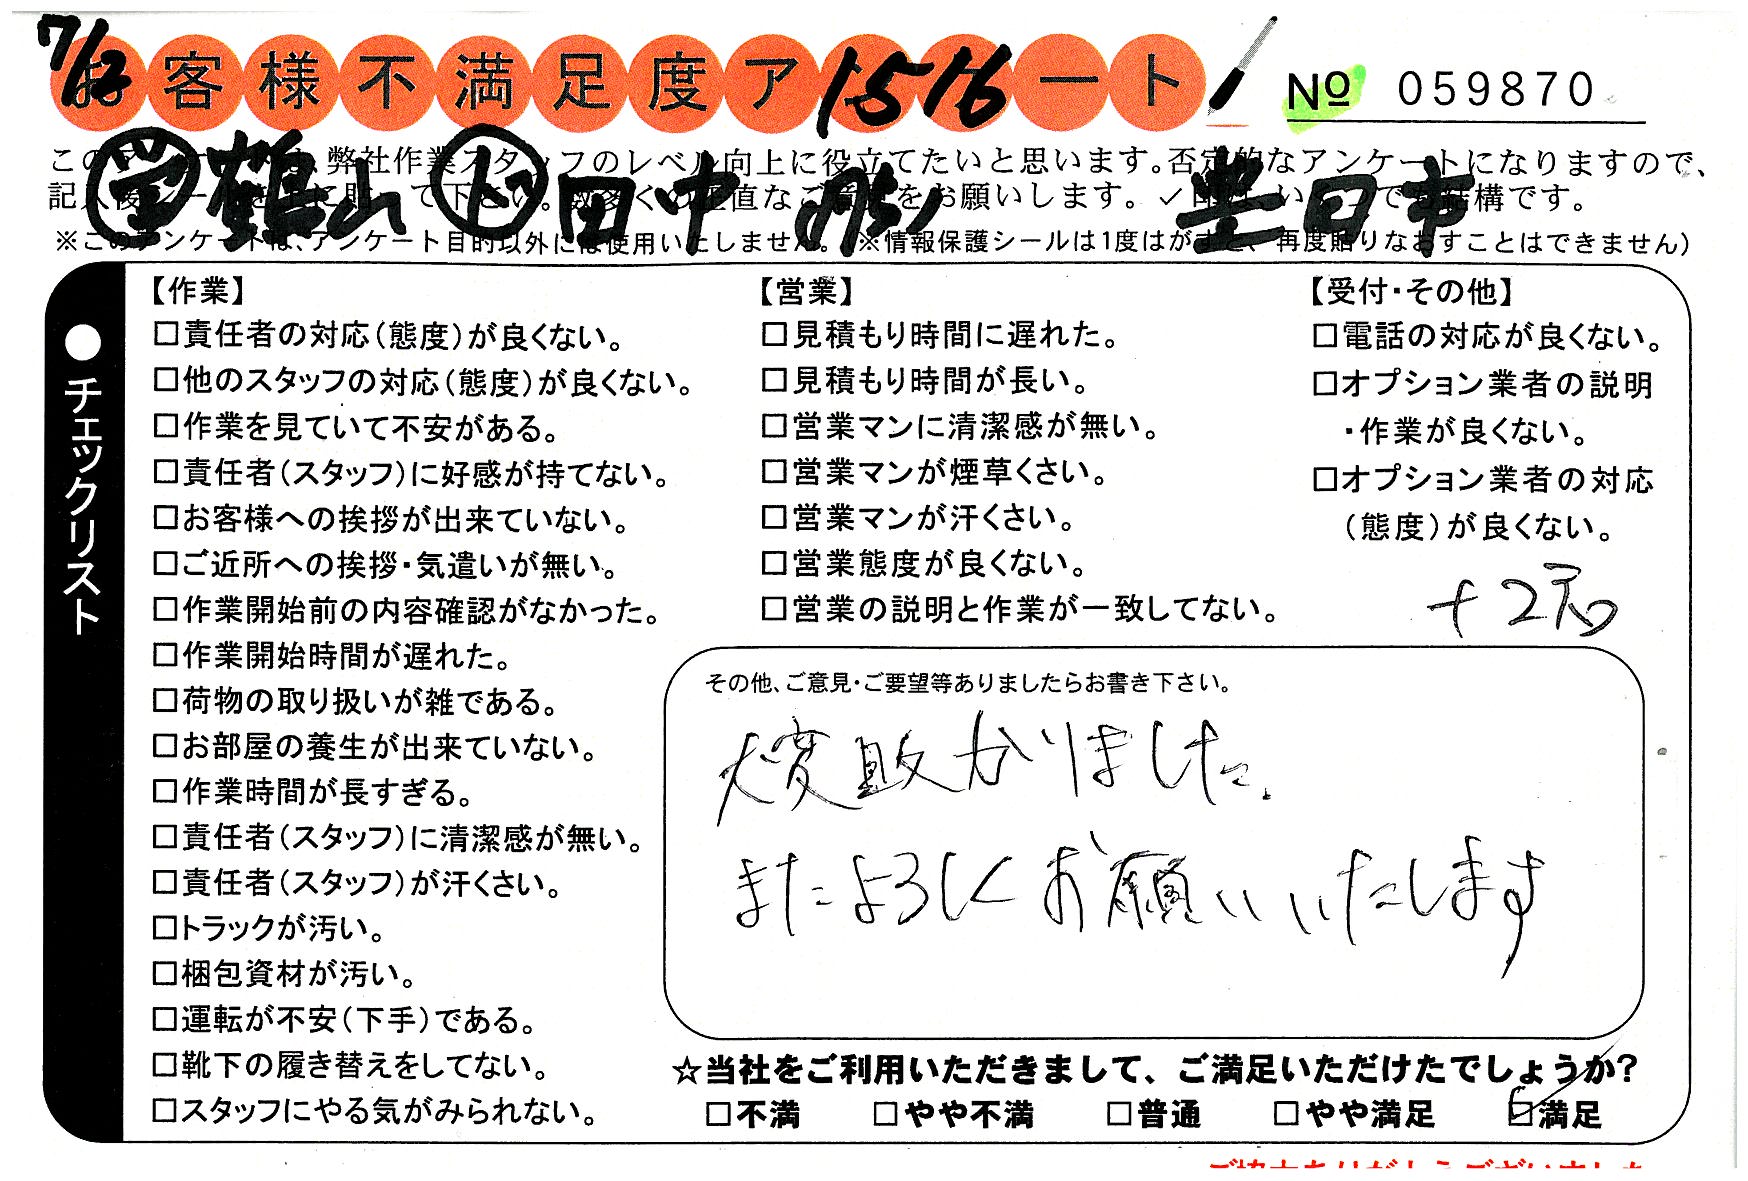 7/12 お客様不満足度ア 1516 ート No 059870
営 鶴山 ト 田中 豊田市
このアンケートは、弊社作業スタッフのレベル向上に役立てたいと思います。否定的なアンケートになりますので、
記入後シールを に貼って下さい。数多くの正直なご意見をお願いします。✓印は、いくつでも結構です。
※このアンケートは、アンケート目的以外には使用いたしません。(※情報保護シールは1度はがすと、再度貼りなおすことはできません)
●チェックリスト
【作業】
□責任者の対応(態度)が良くない。
□他のスタッフの対応(態度)が良くない。
□作業を見ていて不安がある。
□責任者(スタッフ)に好感が持てない。
□お客様への挨拶が出来ていない。
□ご近所への挨拶・気遣いが無い。
□作業開始前の内容確認がなかった。
□作業開始時間が遅れた。
□荷物の取り扱いが雑である。
□お部屋の養生が出来ていない。
□作業時間が長すぎる。
□責任者(スタッフ)に清潔感が無い。
□責任者(スタッフ)が汗くさい。
□トラックが汚い。
□梱包資材が汚い。
□運転が不安(下手)である。
□靴下の履き替えをしてない。
□スタッフにやる気がみられない。
【営業】
□見積もり時間に遅れた。
□見積もり時間が長い。
□営業マンに清潔感が無い。
□営業マンが煙草くさい。
□営業マンが汗くさい。
□営業態度が良くない。
□営業の説明と作業が一致してない。
【受付・その他】
□電話の対応が良くない。
□オプション業者の説明
・作業が良くない。
□オプション業者の対応
(態度)が良くない。
+2
その他、ご意見・ご要望等ありましたらお書き下さい。
大変助かりました。
またよろしくお願いいたします
☆当社をご利用いただきまして、ご満足いただけたでしょうか?
□不満 □やや不満 □普通 □やや満足 ☑満足
ご協力ありがとうございました